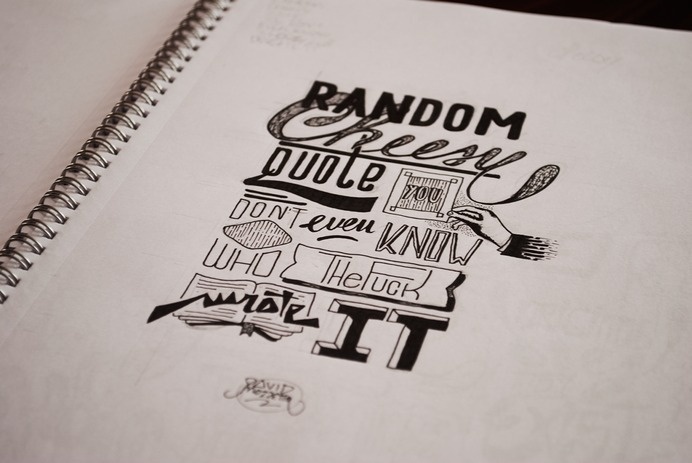 RANDOM
Cheesy
QUOTE YOU
DON'T even KNOW
WHO THE FUCK
wrote IT
DAVID